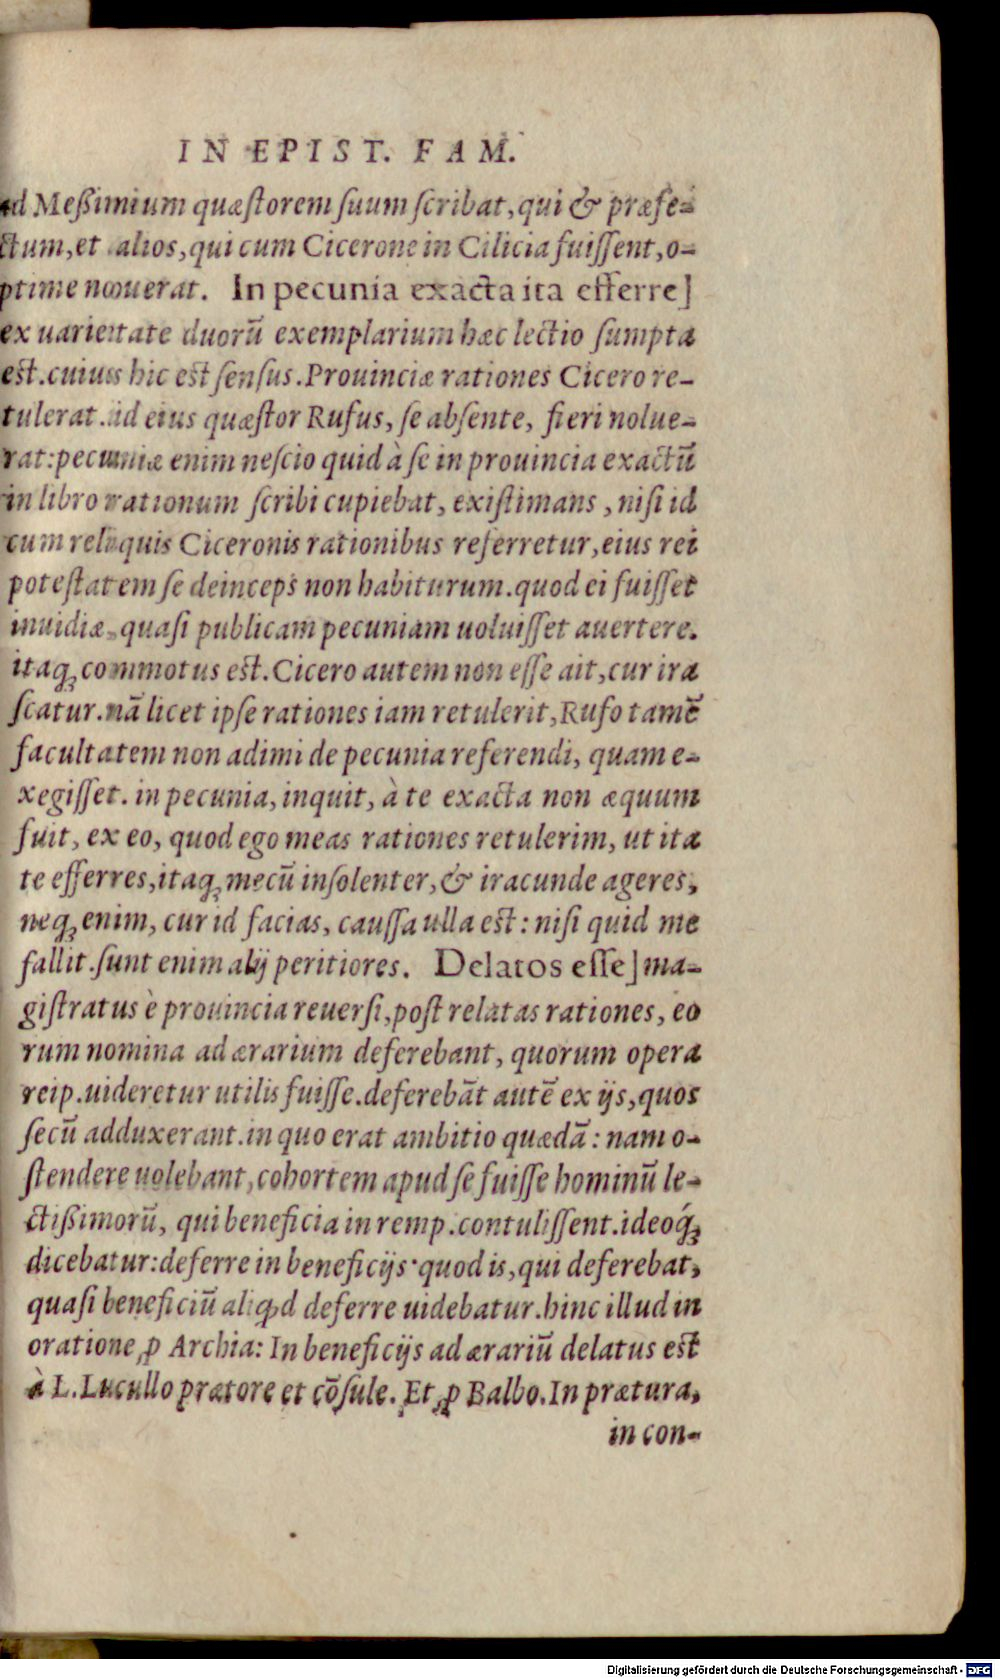 IN EPIST. FAM.
ad Meßimium quæstorem suum scribat, qui & præfe-
ctum, et alios, qui cum Cicerone in Cilicia fuissent, o-
ptime nouerat. In pecunia exacta ita efferre]
ex uarietate duorū exemplarium hæc lectio sumpta
est. cuius hic est sensus. Prouinciæ rationes Cicero re-
tulerat. id eius quæstor Rufus, se absente, fieri nolue-
rat: pecuniæ enim nescio quid à se in prouincia exactū
in libro rationum scribi cupiebat, existimans, nisi id
cum reliquis Ciceronis rationibus referretur, eius rei
potestatem se deinceps non habiturum. quod ei fuisset
inuidiæ, quasi publicam pecuniam uoluisset auertere.
itaq; commotus est. Cicero autem non esse ait, cur ira
scatur. nā licet ipse rationes iam retulerit, Rufo tamē
facultatem non adimi de pecunia referendi, quam e-
xegisset. in pecunia, inquit, à te exacta non æquum
fuit, ex eo, quod ego meas rationes retulerim, ut ita
te efferres, itaq; mecū insolenter, & iracunde ageres,
neq; enim, cur id facias, caussa ulla est: nisi quid me
fallit. sunt enim alij peritiores. Delatos esse] ma-
gistratus è prouincia reuersi, post relatas rationes, eo
rum nomina ad ærarium deferebant, quorum opera
reip. uideretur utilis fuisse. deferebāt autē ex ijs, quos
secū adduxerant. in quo erat ambitio quædā: nam o-
stendere uolebant, cohortem apud se fuisse hominū le-
ctißimorū, qui beneficia in remp. contulissent. ideoq́;
dicebatur: deferre in beneficijs· quod is, qui deferebat,
quasi beneficiū aliꝗd deferre uidebatur. hinc illud in
oratione ꝓ Archia: In beneficijs ad ærariū delatus est
à L. Lucullo prætore et cōsule. Et ꝓ Balbo. In prætura,
in con-
Digitalisierung gefördert durch die Deutsche Forschungsgemeinschaft - DFG